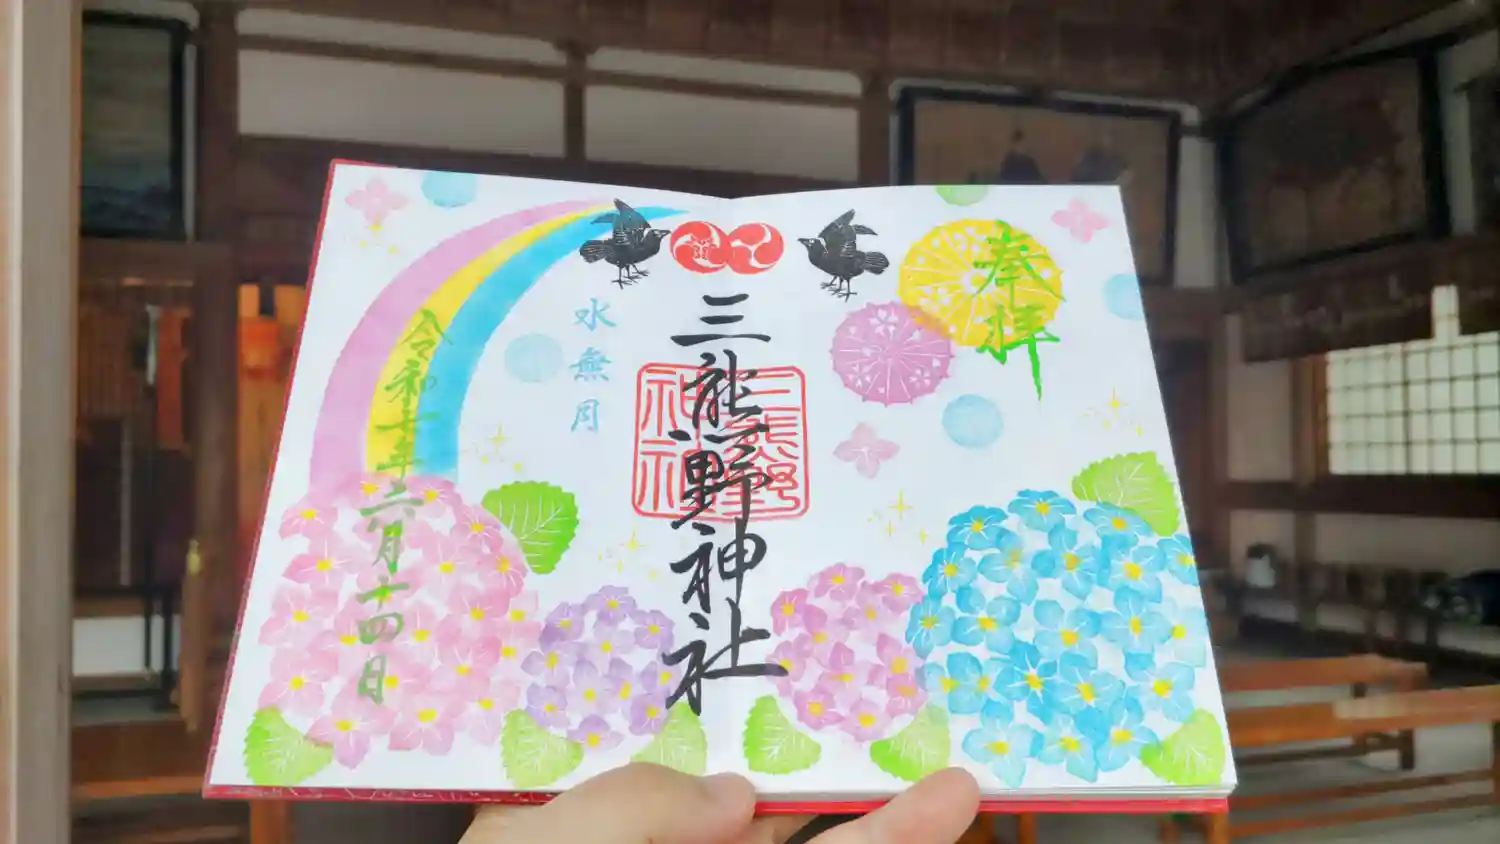 奉拝
三熊野神社
三熊野
神社
水無月
令和七年六月十四日